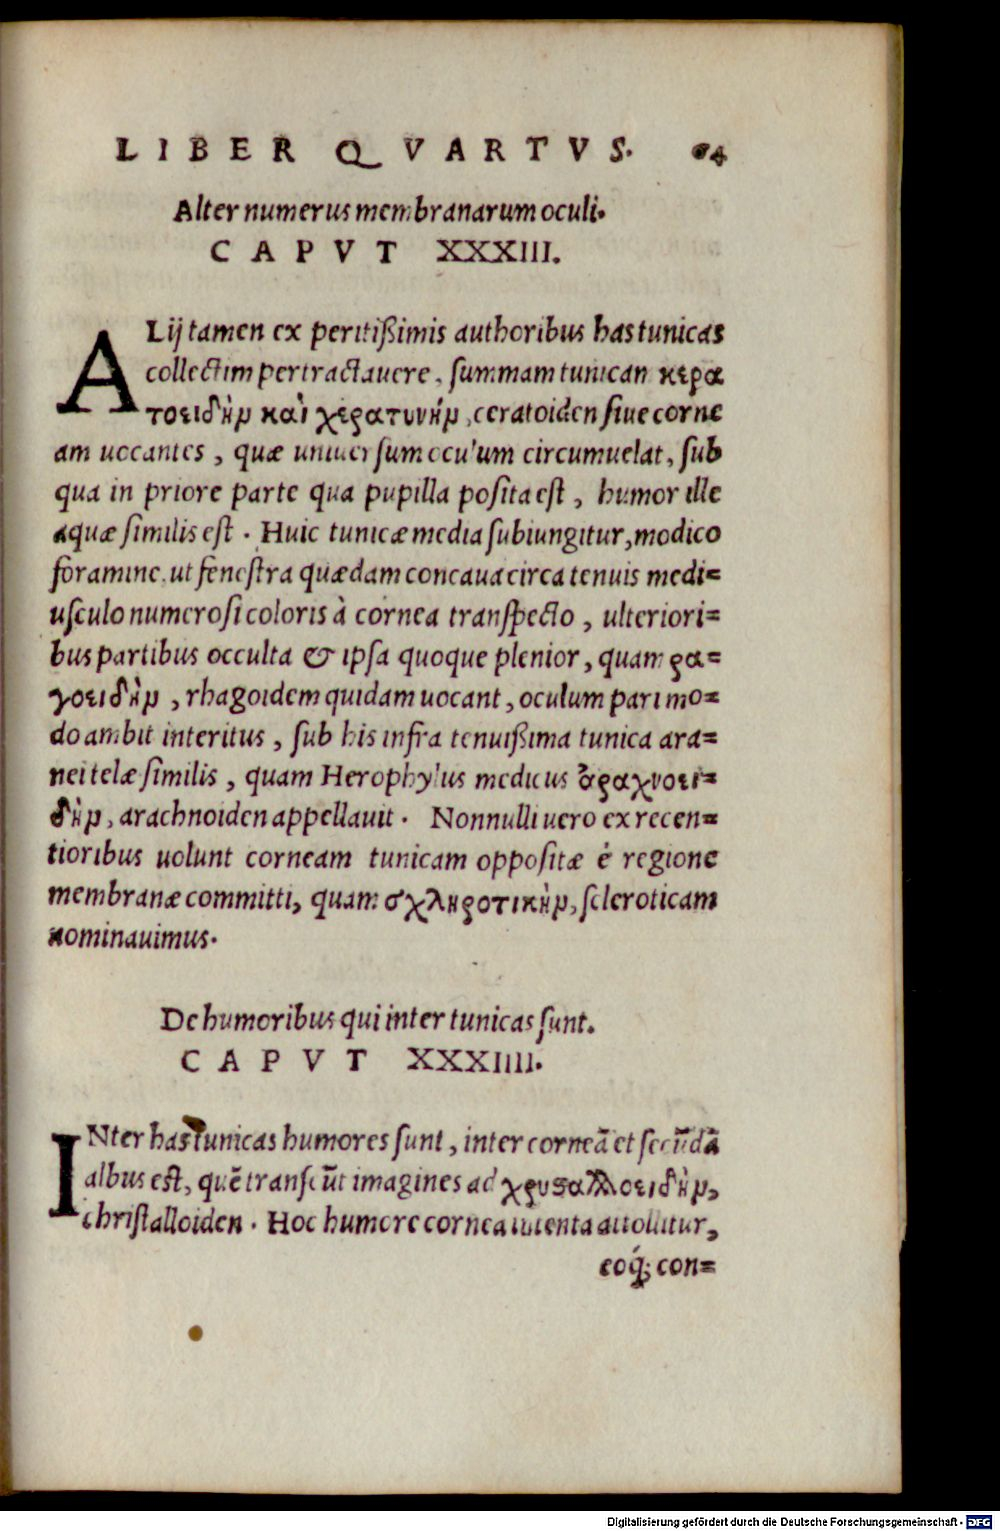 LIBER QVARTVS. 64
Alter numerus membranarum oculi.
CAPVT XXXIII.
ALij tamen ex peritißimis authoribus has tunicas
collectim pertractauere, summam tunican κερα
τοειδὴμ καὶ χερατυνήμ, ceratoiden siue corne
am uocantes, quæ uniuersum oculum circumuelat, sub
qua in priore parte qua pupilla posita est, humor ille
aquæ similis est. Huic tunicæ media subiungitur, modico
foramine, ut fenestra quædam concaua circa tenuis medi=
usculo numerosi coloris à cornea transpecto, ulteriori=
bus partibus occulta & ipsa quoque plenior, quam ρα=
γοειδὴμ, rhagoidem quidam uocant, oculum pari mo=
do ambit interitus, sub his infra tenuißima tunica ara=
nei telæ similis, quam Herophylus medicus ἀραχνοει=
δὴμ, arachnoiden appellauit. Nonnulli uero ex recen=
tioribus uolunt corneam tunicam oppositæ è regione
membranæ committi, quam σχληροτικὴμ, scleroticam
nominauimus.
De humoribus qui inter tunicas sunt.
CAPVT XXXIIII.
INter has tunicas humores sunt, inter corneã et secũdã
albus est, quẽ transeũt imagines ad χρυσαλλοειδὴμ,
christalloiden. Hoc humore cornea intenta attollitur,
eoq́; con=
Digitalisierung gefördert durch die Deutsche Forschungsgemeinschaft - DFG